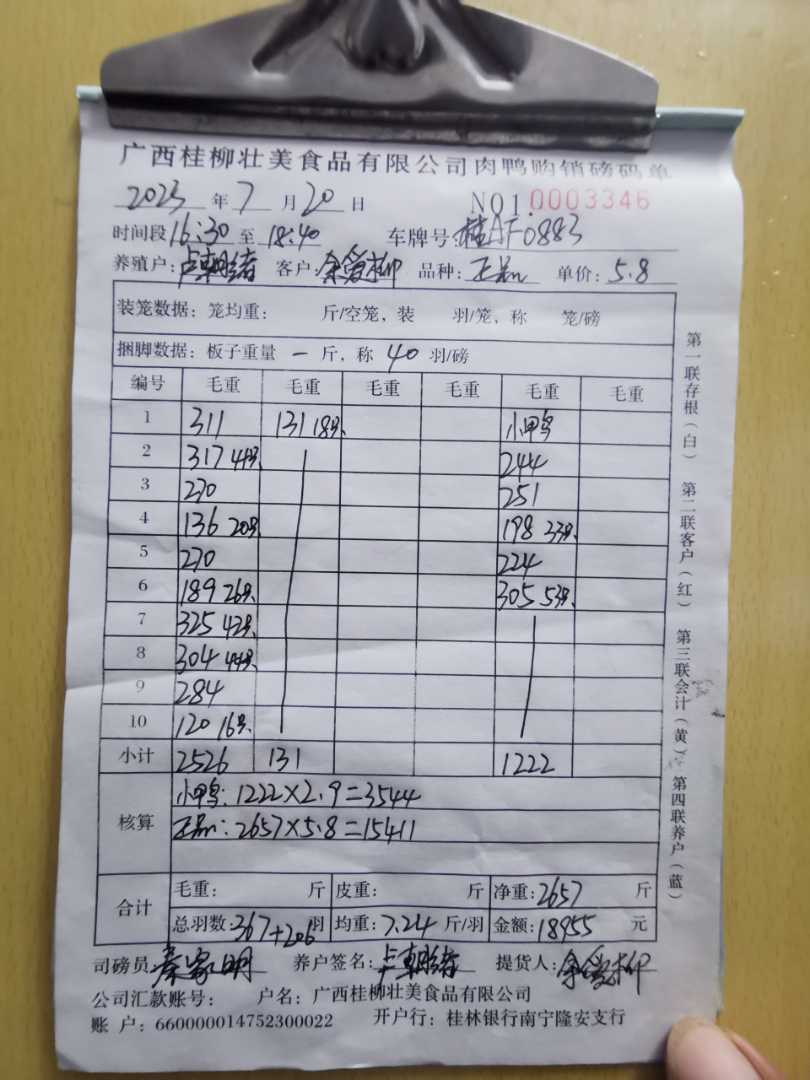 广西桂柳壮美食品有限公司肉鸭购销磅码单
2023 年 7 月 20 日 NO1 0003346
时间段 16:30 至 18:40 车牌号: 桂AF0883
养殖户: 卢朝绪 客户: 余爱柳 品种: 单价: 5.8
装笼数据: 笼均重: 斤/空笼, 装 羽/笼, 称 笼/磅
捆脚数据: 板子重量 一 斤, 称 40 羽/磅
编号 毛重 毛重 毛重 毛重 毛重 毛重
1 311 131 18只 小甲鸟
2 317 只 244
3 270 251
4 136 20只 198 33只
5 270 224
6 189 26只 305 53只
7 325 42只
8 304 44只
9 284
10 120 16只
小计 2526 131 1222
核算 小甲鸟: 1222×2.9=3544
2657×5.8=15411
合计 毛重: 斤 皮重: 斤 净重: 2657 斤
总羽数: 367+206 羽 均重: 7.24 斤/羽 金额: 18955 元
司磅员: 秦家明 养户签名: 卢朝绪 提货人: 余爱柳
公司汇款账号: 户名: 广西桂柳壮美食品有限公司
账 户: 660000014752300022 开户行: 桂林银行南宁隆安支行
第一联存根(白) 第二联客户(红) 第三联会计(黄) 第四联养户(蓝)